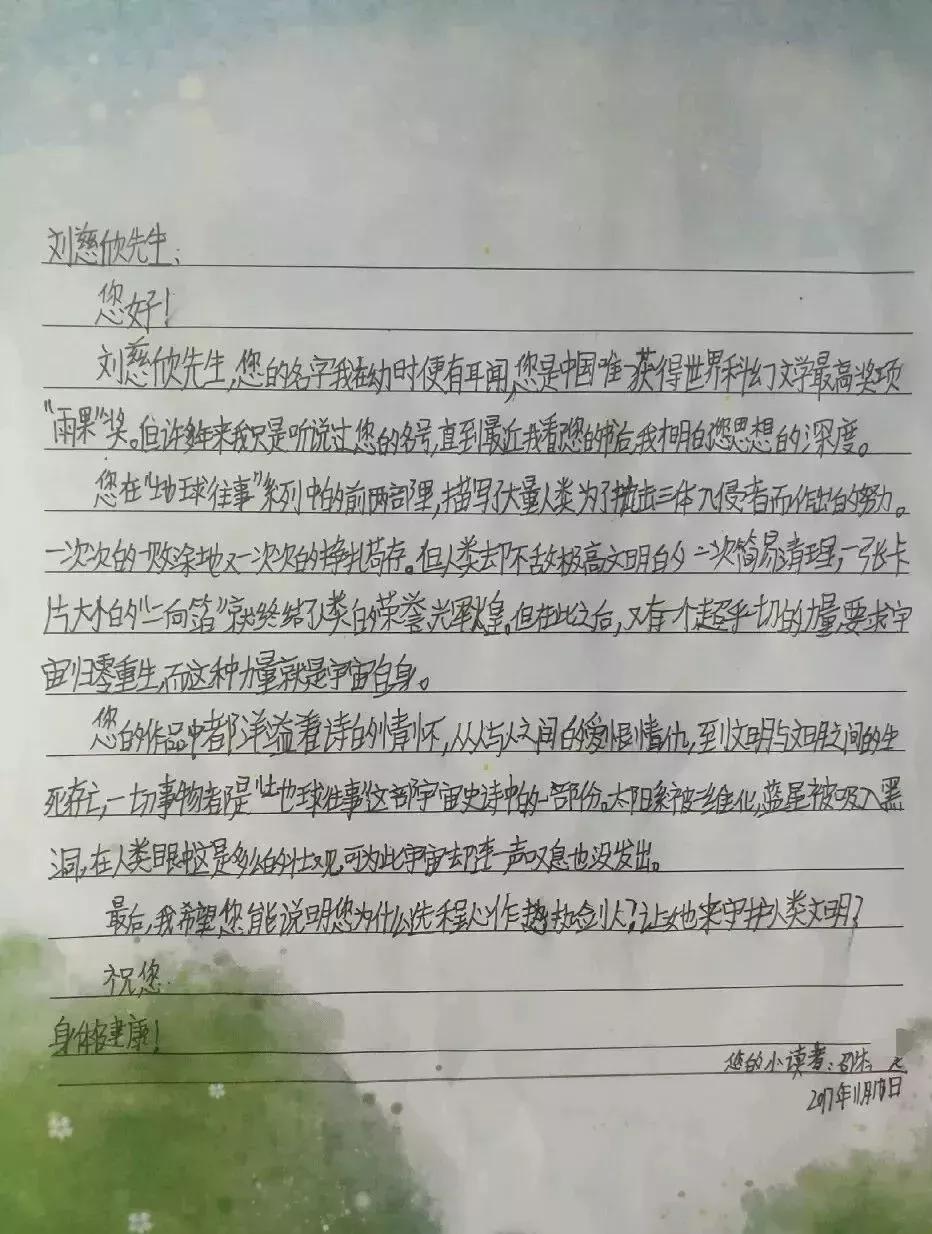 刘慈欣先生:
您好!
刘慈欣先生,您的名字我在幼时便有耳闻,您是中国唯一获得世界科幻文学最高奖项
"雨果"奖。但许多年来我只是听说过您的名号,直到最近我看您的书后,我才明白您思想的深度。
您在"地球往事"系列中的前两部里,描写了大量人类为了抗击三体入侵者而作出的努力。
一次次的一败涂地又一次次的挣扎苟存。但人类却不敌极高文明的一次简易清理,一张卡
片大小的"二向箔"就终结了人类的荣誉光辉煌。但在此之后,又有一个超乎一切的力量要求宇
宙归零重生,而这种力量就是宇宙自身。
您的作品中都洋溢着诗的情怀,从人与人之间的爱恨情仇,到文明与文明之间的生
死存亡,一切事物都是"地球往事"这部宇宙史诗中的一部份。太阳系被二维化,蓝星被吸入黑
洞,在人类眼中这是多么的壮观,可为此宇宙却连一声叹息也没发出。
最后,我希望您能说明您为什么选程心作执剑人?让她来守护人类文明?
祝您
身体健康!
您的小读者:
2017年11月18日